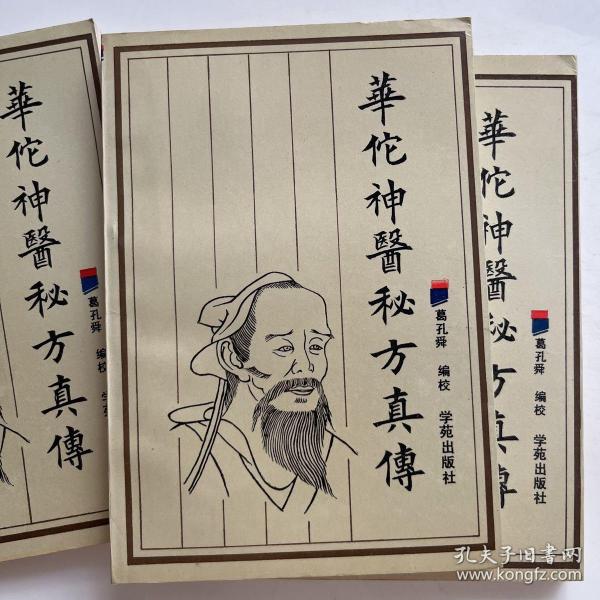 華佗神醫秘方真傳
葛孔舜 编校 学
華佗神醫秘方真傳
葛孔舜 编校 学苑出版社
華佗神醫秘方真傳
葛孔舜 编校 学苑出版社
孔夫子旧书网
www.kongfz.com